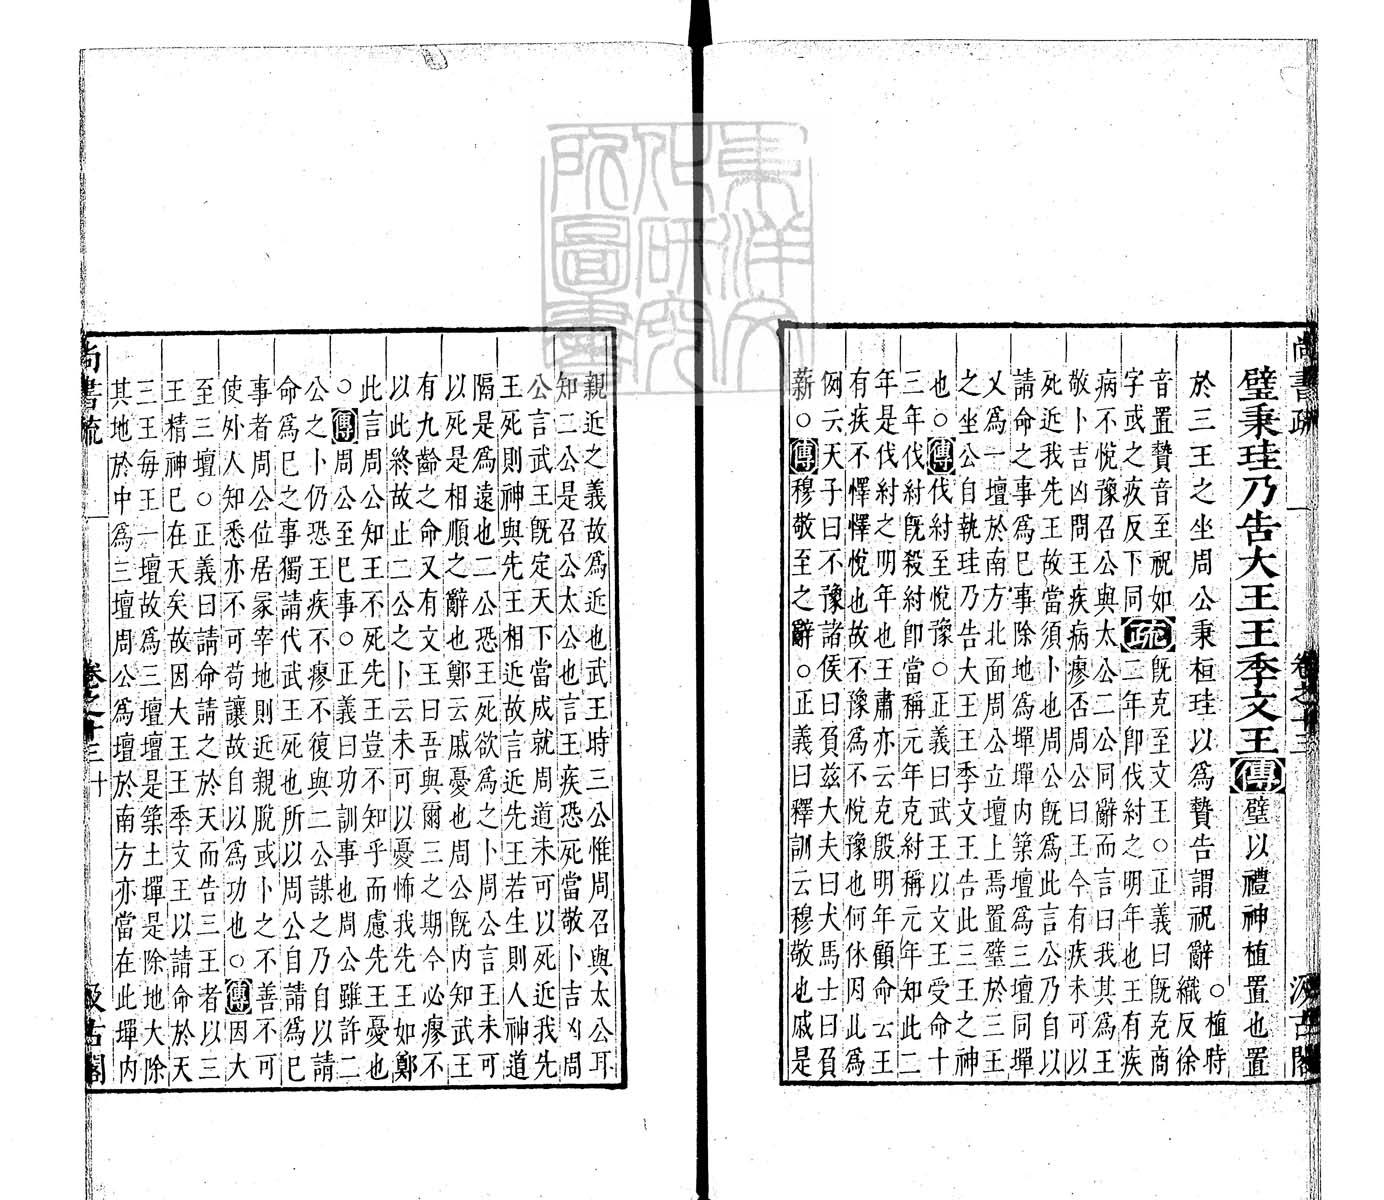 尚書疏　卷之十三　汲古閣
璧秉珪乃告大王王季文王傳璧以禮神植置也置
於三王之坐周公秉桓珪以爲贄告謂祝辭○植時
織反徐
音置贄音至祝如
字或之疚反下同疏既克至文王○正義曰既克商
二年卽伐紂之明年也王有疾
病不悅豫召公與太公二公同辭而言曰我其爲王
敬卜吉凶問王疾病瘳否周公曰王今有疾未可以
死近我先王故當須卜也周公旣爲此言公乃自以
請命之事爲巳事除地爲墠墠內築壇爲三壇同墠
又爲一壇於南方北面周公立壇上焉置璧於三王
之坐公自執珪乃告大王王季文王告此三王之神
也○傳伐紂至悅豫○正義曰武王以文王受命十
三年伐紂旣殺紂卽當稱元年克紂稱元年知此二
年是伐紂之明年也王肅亦云克殷明年顧命云王
有疾不懌懌悅也故不豫爲不悅豫也何休因此爲
例云天子曰不豫諸侯曰負兹大夫曰犬馬士曰負
薪○傳穆敬至之辭○正義曰釋訓云穆敬也戚是
親近之義故爲近也武王時三公惟周召與太公耳
知二公是召公太公也言王疾恐死當敬卜吉凶問
公言武王旣定天下當成就周道未可以死近我先
王死則神與先王相近故言近先王若生則人神道
隔是爲遠也二公恐王死欲爲之卜周公言王未可
以死是相順之辭也鄭云戚憂也周公旣內知武王
有九齡之命又有文王曰吾與爾三之期今必瘳不
以此終故止二公之卜云未可以憂怖我先王如鄭
此言周公知王不死先王豈不知乎而慮先王憂也
○傳周公至巳事○正義曰功訓事也周公雖許二
公之卜仍恐王疾不瘳不復與二公謀之乃自以請
命爲巳之事獨請代武王死也所以周公自請爲巳
事者周公位居冢宰地則近親脫或卜之不善不可
使外人知悉亦不可苟讓故自以爲功也○傳因大
至三壇○正義曰請命請之於天而告三王者以三
王精神巳在天矣故因大王王季文王以請命於天
三王每王一壇故爲三壇壇是築土墠是除地大除
其地於中爲三壇周公爲壇於南方亦當在此墠內
尚書疏　卷之十三　十　汲古閣
東洋文化研究所圖書